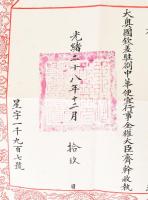 大奧國欽差駐劄中華便宜行事全權大臣齊幹 執
光緒二十八年十二月 拾玖 日
星字一千九百七號